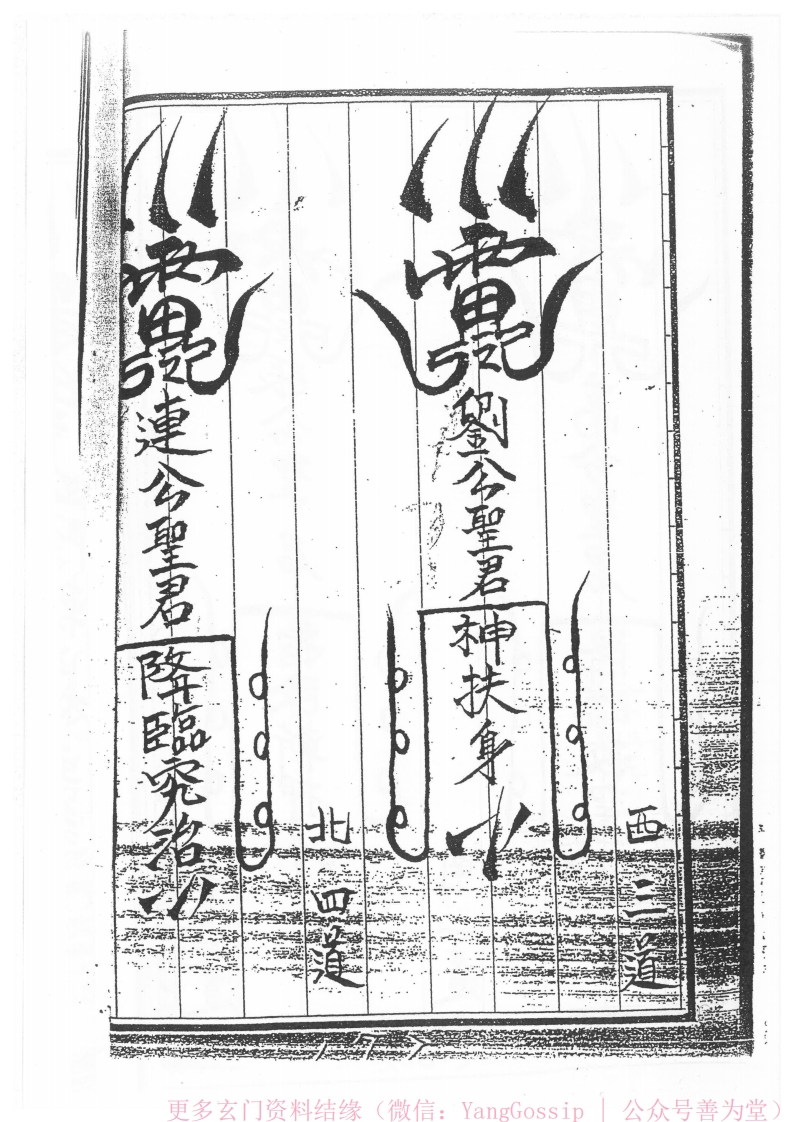 西三道
劉公聖君神扶身
北四道
連公聖君降臨究治
更多玄门资料结缘（微信：YangGossip | 公众号善为堂）